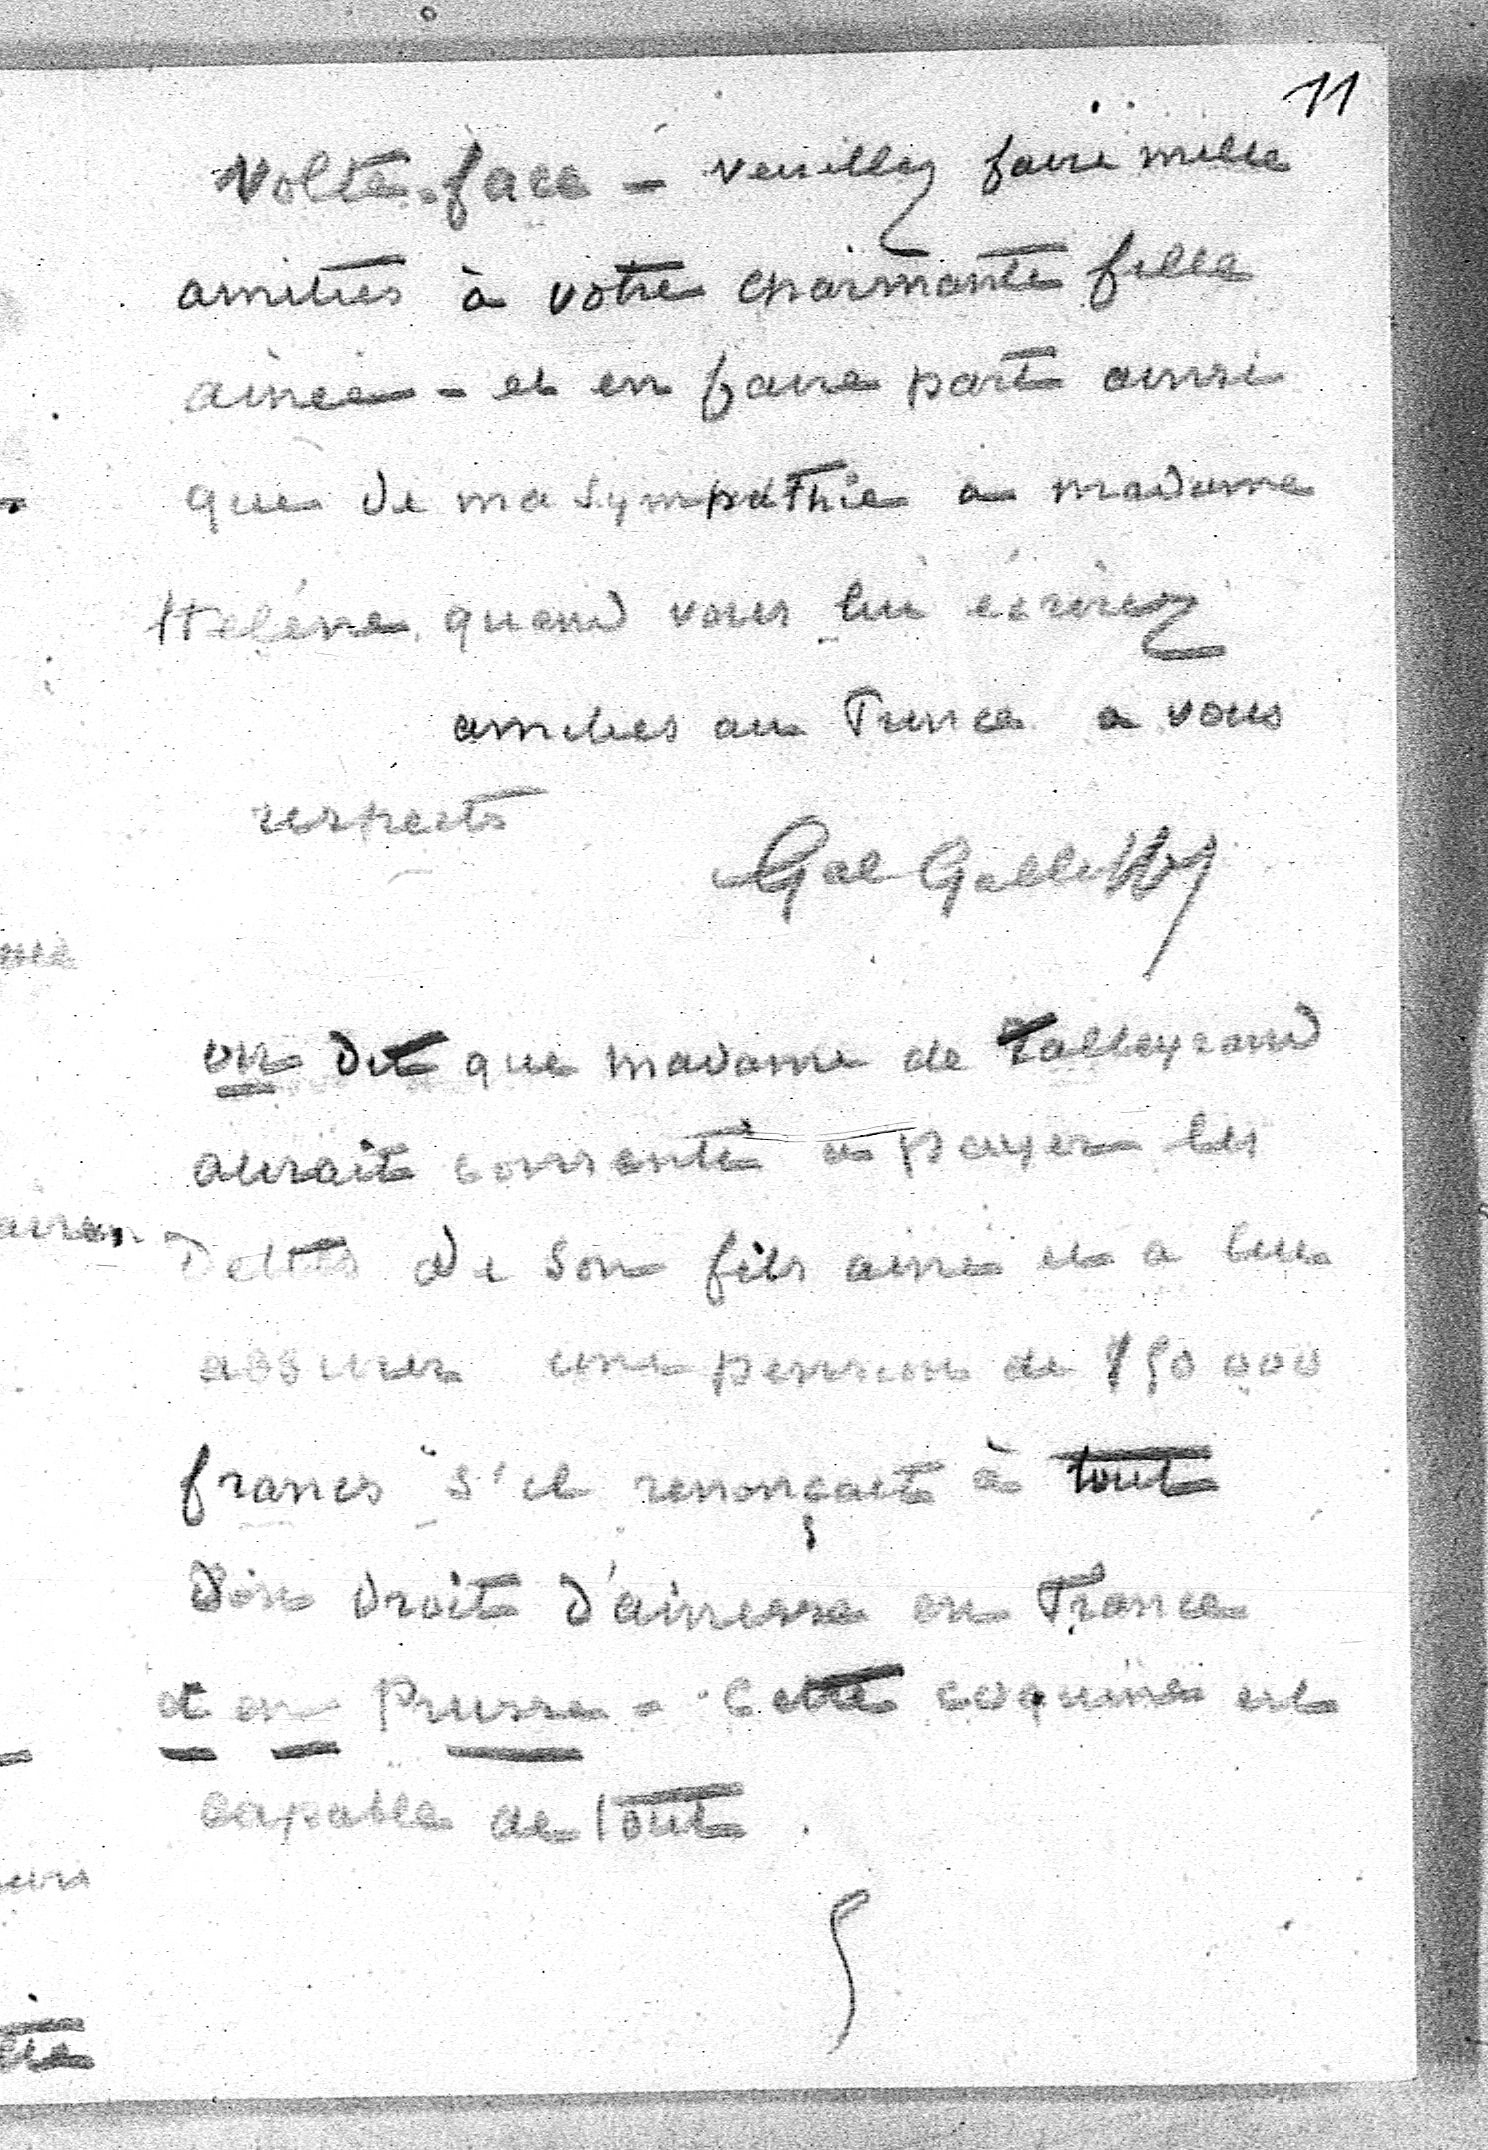 11
volte-face - veuillez faire mille
amitiés à votre charmante fille
ainée - et en faire part ainsi
que de ma sympathie a madame
Hélène quand vous lui écrirez
amitiés au Prince a vous
respects
Gal Galliffet
on dit que madame de Talleyrand
aurait consenti a payer les
Dettes de son fils ainé et a lui
assurer une pension de 150 000
francs s'il renonçait à tout
son droit d'ainesse en France
et en Prusse - Cette coquine est
capable de tout.